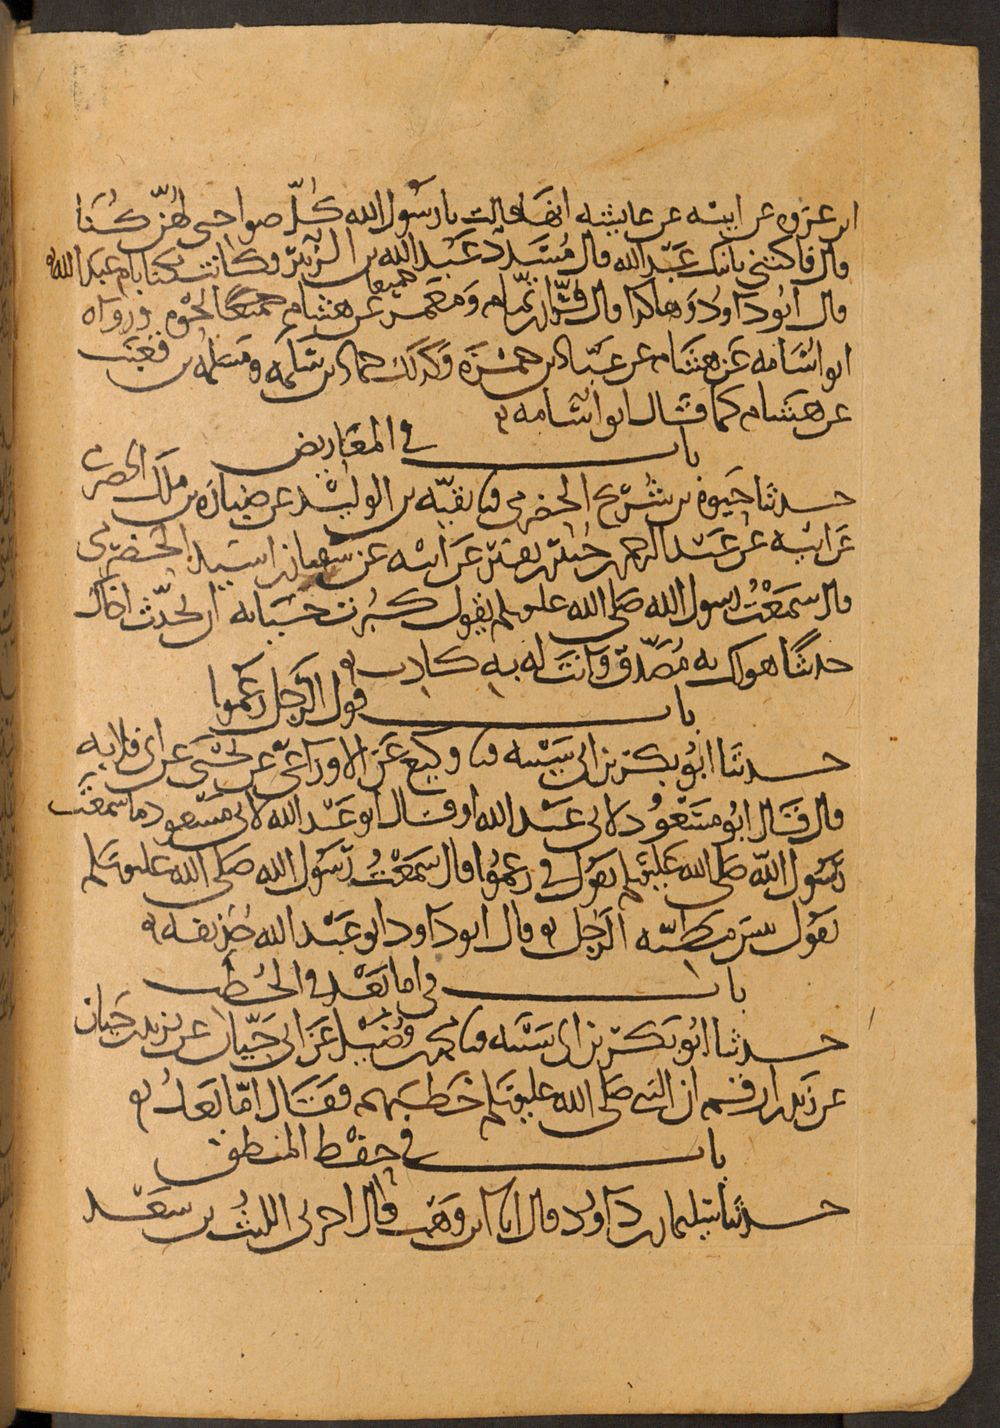 ابن عروة عن ابيه عن عايشه انها قالت يا رسول الله كُلّ صواحبى لهُنّ كُنَا
قال فاكتني بابنك عَبْد الله قال مُسَدد عَبْد الله بن الزُّبَيْر وكانت تكنا بام عبد الله
قال ابُو داودُ وَهاكذا قال قُرّان بن تمّام وَمَعْمَر جميعا عن هشام جميعًا نحْوه ورواه
ابو اُسَامه عَن هشام عن عبّاد بن حمْزَه وَكذلك حماد بن سَلَمه ومَسلمه بن قَعْنَب
عن هشَام كما قَال ابو اُسامه
باب في المعَاريض
حدثنا حَيوة بن شُرَيْح الحضْرمي ثنا بقيّه بن الوليْد عن ضبَارَه بن ملَك الحضرمى
عَن ابيْه عن عَبْد الرحمن بن جُبَيْر بن نفيْر عَن ابيْه عن سفيان بن اسَيد الحَضْرَمي
قال سمعْتُ رسول الله صَلى الله عليه وسلم يقول كَبُرَت خيَانه ان تحدّث اخاكَ
حديثًا هو لك به مُصَدّق وَانتَ له به كاذب
باب قول الرَّجل زعَموا
حدثَنا ابُو بكر بن ابى شَيْبه ثنا وكيع عَن الاوزاعيّ عن يحْيَى عن ابى قلابه
قال قَال ابُو مسَعْوُد لابى عَبْد الله او قال ابو عَبْد الله لابى مسْعود ما سمعْتَ
رَسُول اللّه صَلى الله عَليه وسلم يقوُل في زعمُوا قال سَمعْتُ رَسُول الله صَلى الله عليه وسلم
يقوُل بيس مَطيّه الرّجُل قال ابو دَاود ابو عَبْد الله حُذيفه
باب في اما بَعْد في الخُطَب
حدثنا ابُو بَكر بن ابى شَيْبَه ثنا محمد بن فُضَيْل عَن ابى حَيّان عن يزيد بن حَيان
عن زَيد بن ارقم ان النبي صَلى الله عليه وسلم خَطبَهم فقَال امّا بَعْدُ
باب في حفْظ المنطق
حدثنا سُليمان بن دَاود قال انا ابن وَهب قال اخبرنى الليثُ بن سَعْد